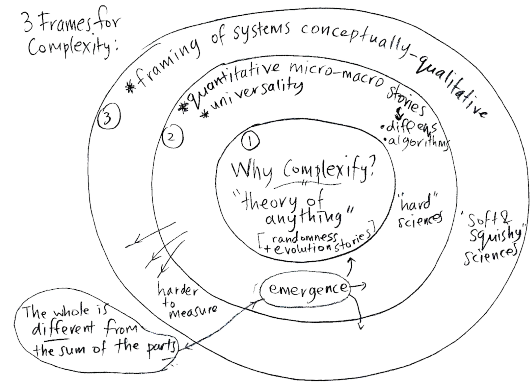 3 Frames for
Complexity:
*framing of systems conceptually-qualitative
③
*quantitative micro-macro stories
*universality
②
• diff eqns
• algorithms
①
Why Complexify?
"theory of
anything"
[randomness
+ evolution stories]
"hard"
sciences
"Soft &
Squishy"
Sciences
harder
to
measure
emergence
The whole is
different from
the sum of the parts